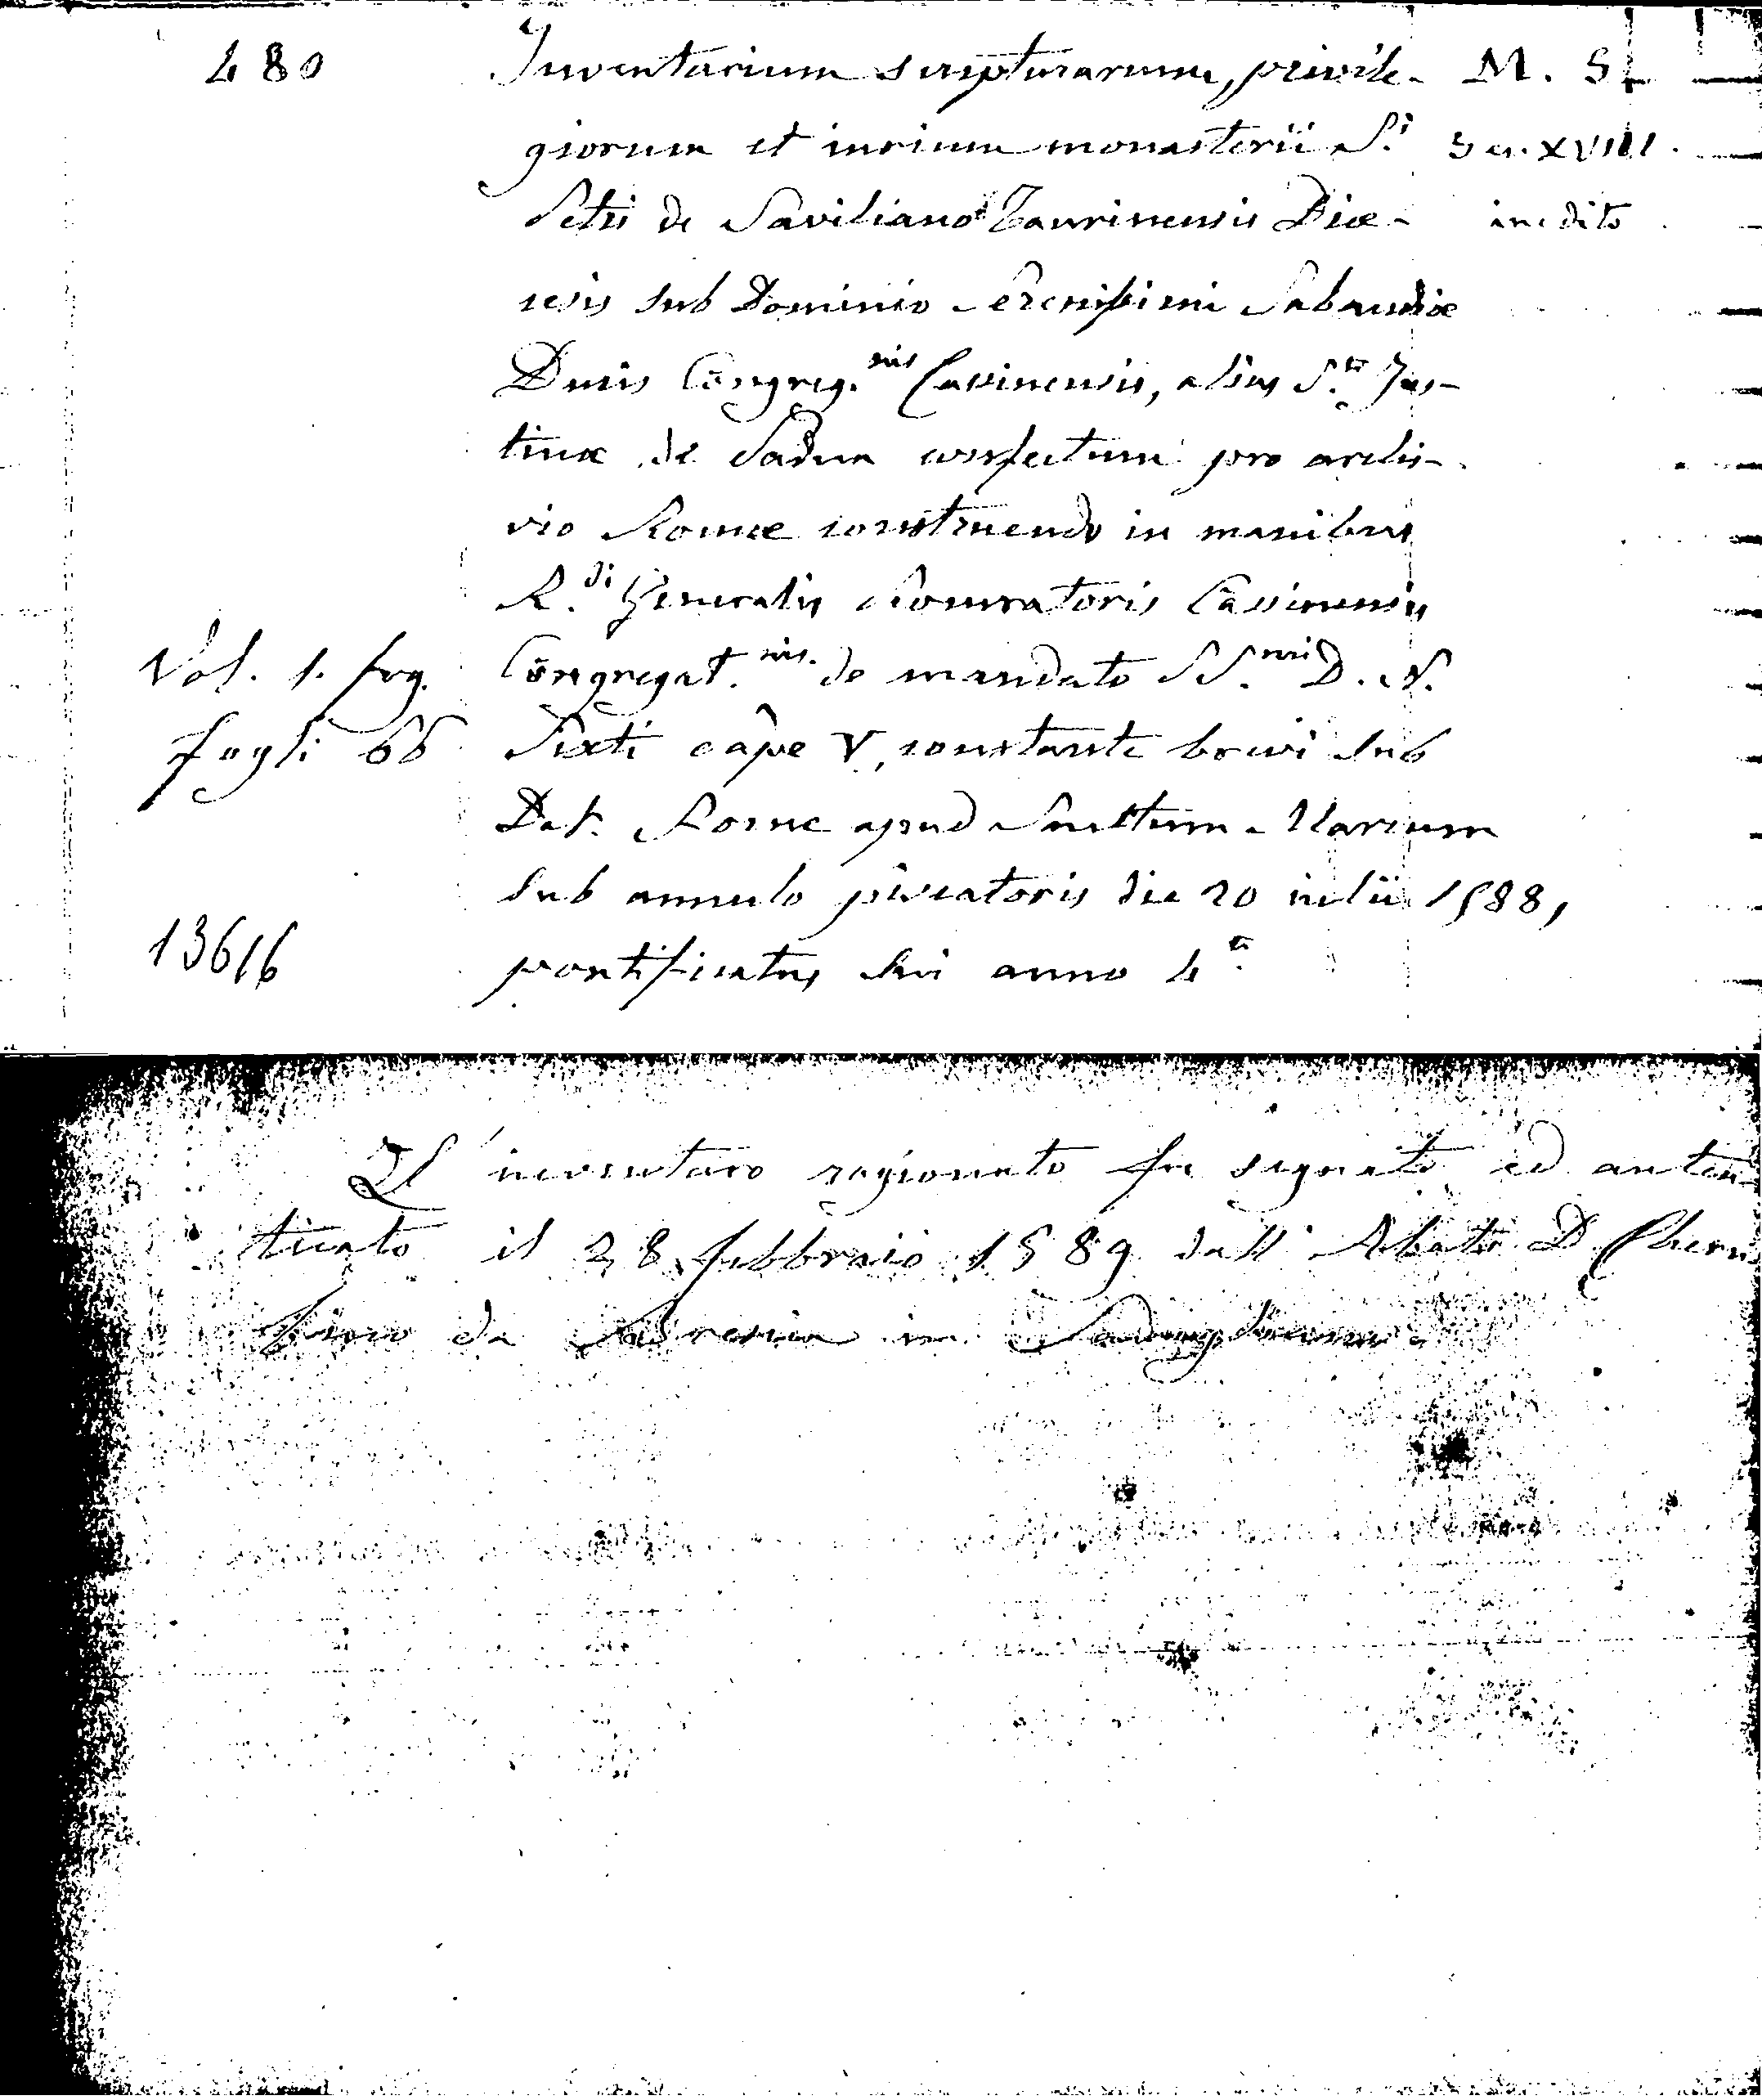 480
Inventarium scripturarum, privile-
giorum et iurium monasterii S.i
Petri de Saviliano Taurinensis Diœ-
cesis sub Dominio Serenissimi Sabaudiæ
Ducis Congreg.nis Cassinensis, alias S.te Jus-
tinæ de Padua confectum pro archi-
vio Romæ construendo in manibus
R.di Generalis Procuratoris Cassinensis
Congregat.nis de mandato SS.mi D. N.
Sixti pape V, constante brevi sub
Dat. Rome apud Sanctum Marcum
sub annulo piscatoris die 20 iulii 1588,
pontificatus sui anno 4.o
M. S.
Sec. XVIII.
inedito
Vol. 1. leg.
fogli 66
13616
L'inventaro ragionato fu segnato ed auten
ticato il 28 febbraio 1589 dall'Abate D. Cheru
bino da Brescia in